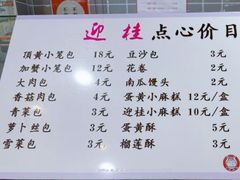 迎桂点心价目
頂黄小笼包 18元 豆沙包 3元
加蟹小笼包 12元 花卷 2元
大肉包 4元 南瓜馒头 2元
香菇肉包 4元 蛋黄小麻糕 12元/盒
青菜包 3元 迎桂小麻糕 10元/盒
萝卜丝包 3元 蛋黄酥 5元
雪菜包 3元 榴莲酥 3元